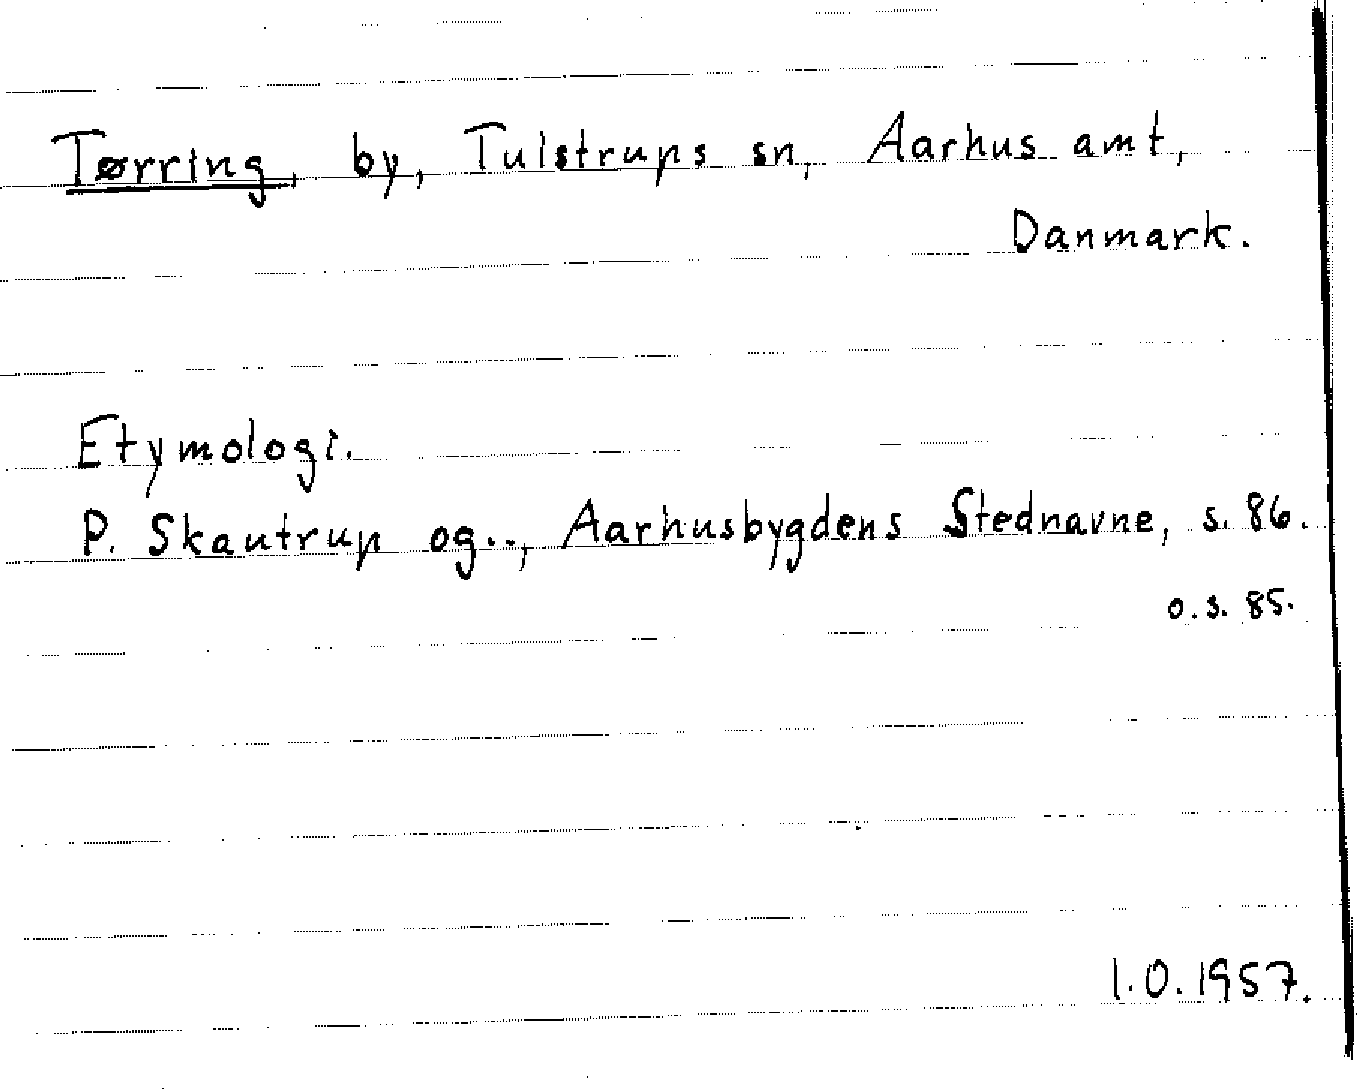 Tørring, by, Tulstrups sn, Aarhus amt,
Danmark.
Etymologi.
P. Skautrup og.., Aarhusbygdens Stednavne, s. 86.
o.s. 85.
I.O. 1957.